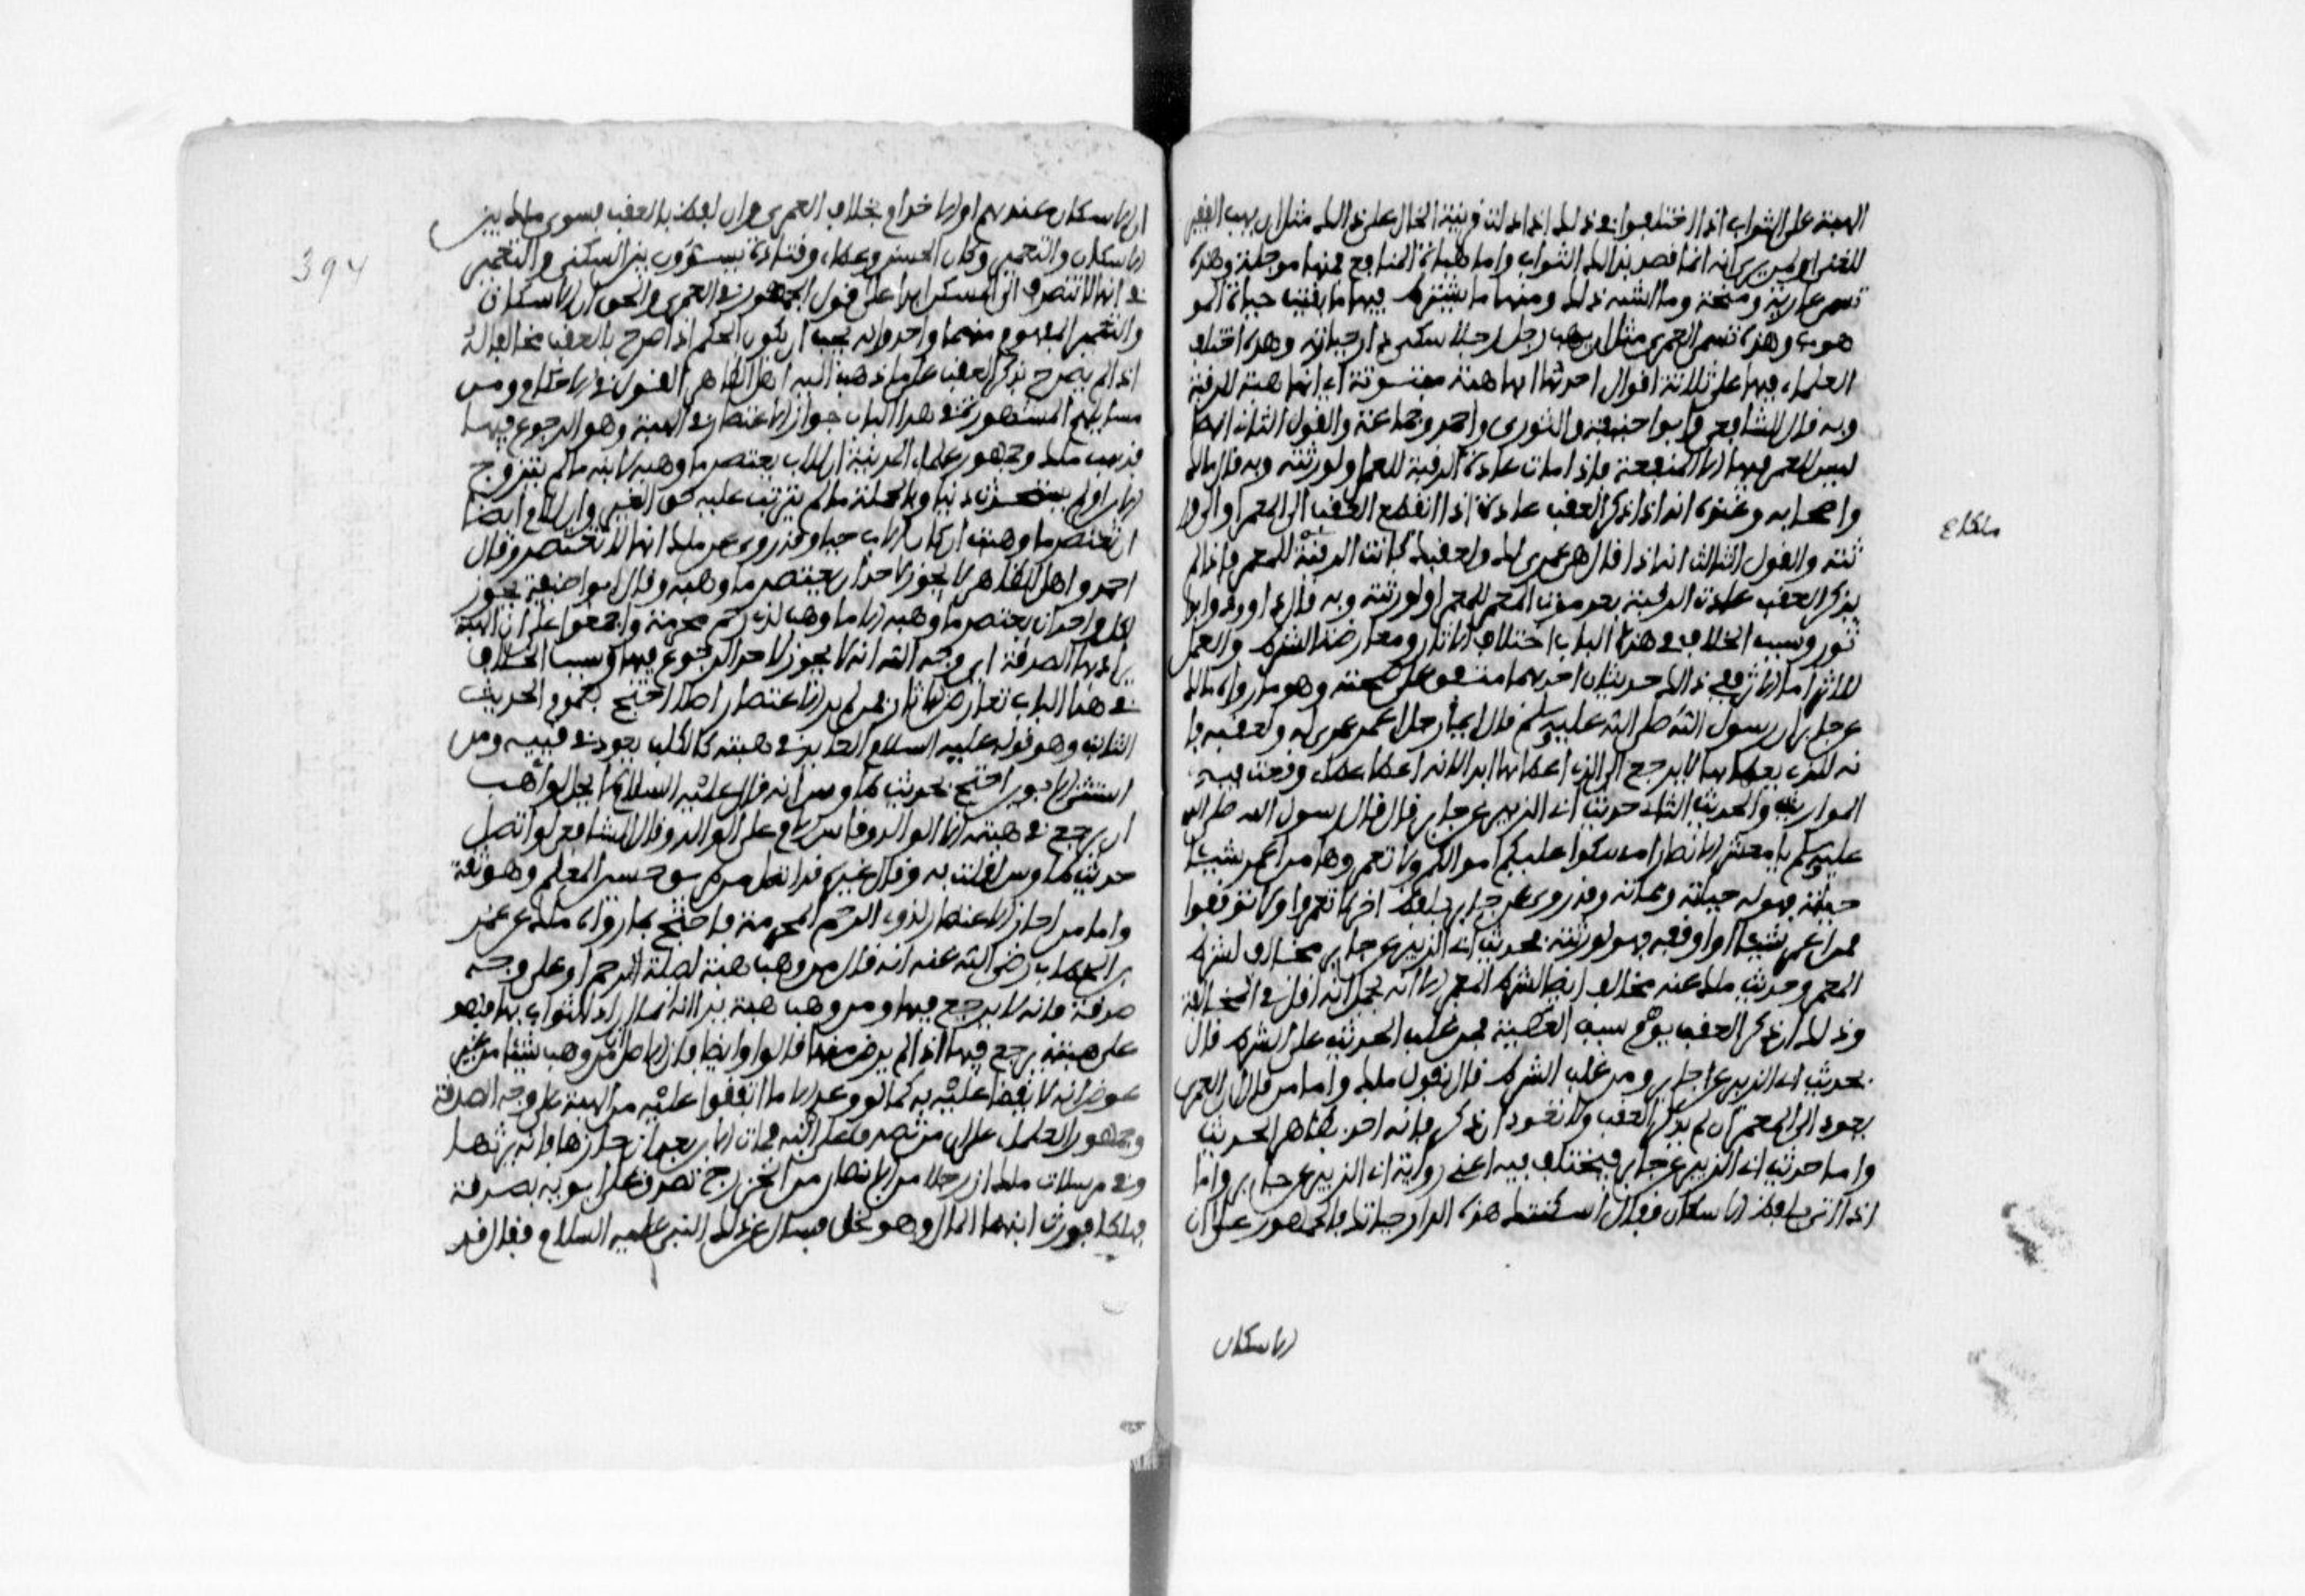 الهبة على الثواب اذا اختلفوا في ذلك اذا دلت قرينة الحال على ذالك مثل ان يهب الفقير
للغني او لمن يرى انه انما قصد بذالك الثواب واما هبات المنافع فمنها موجلة وهذه
تسمى عارية ومنحة وما اشبه ذلك ومنها ما يشترط فيها ما بقيت حياة المو
هوب وهذه تسمى العمرى مثل ان يهب رجل رجلا سكنى دار حياته وهذه اختلف
العلماء فيها على ثلاثة اقوال احدها انها هبة مبتوتة اي انها هبة للرقبة
وبه قال الشافعي وابو حنيفة والثوري واحمد وجماعة والقول الثاني انه
ليس للمعمر فيها الا المنفعة فاذا مات عادت الرقبة للمعمر او لورثته وبه قال مالك
واصحابه وعنده انه اذا ذكر العقب عادت اذا انقطع العقب الى المعمر او الى ور
ثته والقول الثالث انه اذا قال هي عمرى لك ولعقبك كانت الرقبة للمعمر فاذا لم
يذكر العقب عادت الرقبة بعد موت المعمر للمعمر او لورثته وبه قال داوود وابو
ثور وسبب الخلاف في هذا الباب اختلاف الاثار ومعارضة الشرط والعمل
للاثر اما الاثر ففي ذالك حديثان احدهما متفق على صحته وهو ما رواه مالك
عن جابر ان رسول الله صلى الله عليه وسلم قال ايما رجل اعمر عمرى له ولعقبه فا
نه للذي يعطاها لا يرجع الى الذي اعطاها ابدا لانه اعطى عطاء وقعت فيه
المواريث والحديث الثاني حديث ابي الزبير عن جابر قال قال رسول الله صلى الله
عليه وسلم يا معشر الانصار امسكوا عليكم اموالكم ولا تعمروها من اعمر شيئا
حياته فهو له حياته ومماته وقد روي عن جابر بلفظ اخر لا تعمروا ولا ترقبوا
فمن اعمر شيئا او ارقبه فهو لورثته فحديث ابي الزبير عن جابر مخالف لشرط
المعمر وحديث ملك عنه مخالف ايضا لشرط المعمر الا انه يخيل انه اقل في المخالفة
وذلك ان ذكر العقب يوهم سبب العطية فمن غلب الحديث على الشرط قال
بحديث ابي الزبير عن جابر ومن غلب الشرط قال بقول ملك واما من قال ان العمرى
تعود الى المعمر ان لم يذكر العقب ولا تعود ان ذكر فانه اخذ بظاهر الحديث
واما حديث ابي الزبير عن جابر فيختلف فيه اعني رواية ابي الزبير عن جابر واما
اذا اتى بلفظ الاسكان فقال اسكنتك هذه الدار حياتك فالجمهور على ان
الاسكان
ان الاسكان عندهم او الاخدام بخلاف العمرى وان لفظ بالعقب فسوى ملك بين
الاسكان والتعمير وكان الحسن وعطاء وقتادة يسوون بين السكنى والتعمير
في انها لا تنصرف الى المسكن ابدا على قول الجمهور في العمرى والحق ان الاسكان
والتعمير المفهوم منهما واحد وانه يجب ان يكون الحكم اذا صرح بالعقب مخالفا له
اذا لم يصرح بذكر العقب على ما ذهب اليه اهل الظاهر القول في الاحكام ومن
مسايلهم المشهورة في هذا الباب جواز الاعتصار في الهبة وهو الرجوع فيها
فذهب ملك وجمهور علماء المدينة ان للاب يعتصر ما وهبه لابنه ما لم يتزوج
الابن او لم يستحدث دينا وبالجملة ما لم يترتب عليه حق الغير وان للام ايضا
ان تعتصر ما وهبت ان كان الاب حيا وقد روي عن ملك انها لا تعتصر وقال
احمد واهل الظاهر لا يجوز لاحد ان يعتصر ما وهبه وقال ابو حنيفة يجوز
لكل واحد ان يعتصر ما وهبه الا ما وهب لذي رحم محرمة واجمعوا على ان الهبة
يراد بها الصدقة اي وجه الله انه لا يجوز لاحد الرجوع فيها وسبب الخلاف
في هذا الباب تعارض الاثار فمن لم ير الاعتصار اصلا احتج بعموم الحديث
الثابت وهو قوله عليه السلام العايد في هبته كالكلب يعود في قييه ومن
استثنى الابوين احتج بحديث طاوس انه قال عليه السلام لا يحل لواهب
ان يرجع في هبته الا الوالد وقاس الام على الوالد وقال الشافعي لو اتصل
حديث طاوس لقلت به وقال غيره قد اتصل من طريق حسين المعلم وهو ثقة
واما من اجاز الاعتصار لذوي الرحم المحرمة فاحتج بما رواه ملك عن عمر
بن الخطاب رضي الله عنه انه قال من وهب هبة لصلة الرحم او على وجه
صدقة فانه لا يرجع فيها ومن وهب هبة يرا انه انما اراد الثواب بها فهو
على هبته يرجع فيها اذا لم يرض منها قالوا وايضا فان الاصل ان من وهب شيئا من غير
عوض انه لا يقضى عليه به كما لو وعد الا ما اتفقوا عليه من الهبة على وجه الصدقة
وجمهور العلماء على ان من تصدق على ابنه فمات الابن بعد ان حازها فانه يرثها
وفي مرسلات ملك ان رجلا من الانصار من الخزرج تصدق على ابويه بصدقة
فهلكا فورث ابنهما المال وهو نخل فسال عن ذلك النبي عليه السلام فقال قد
394